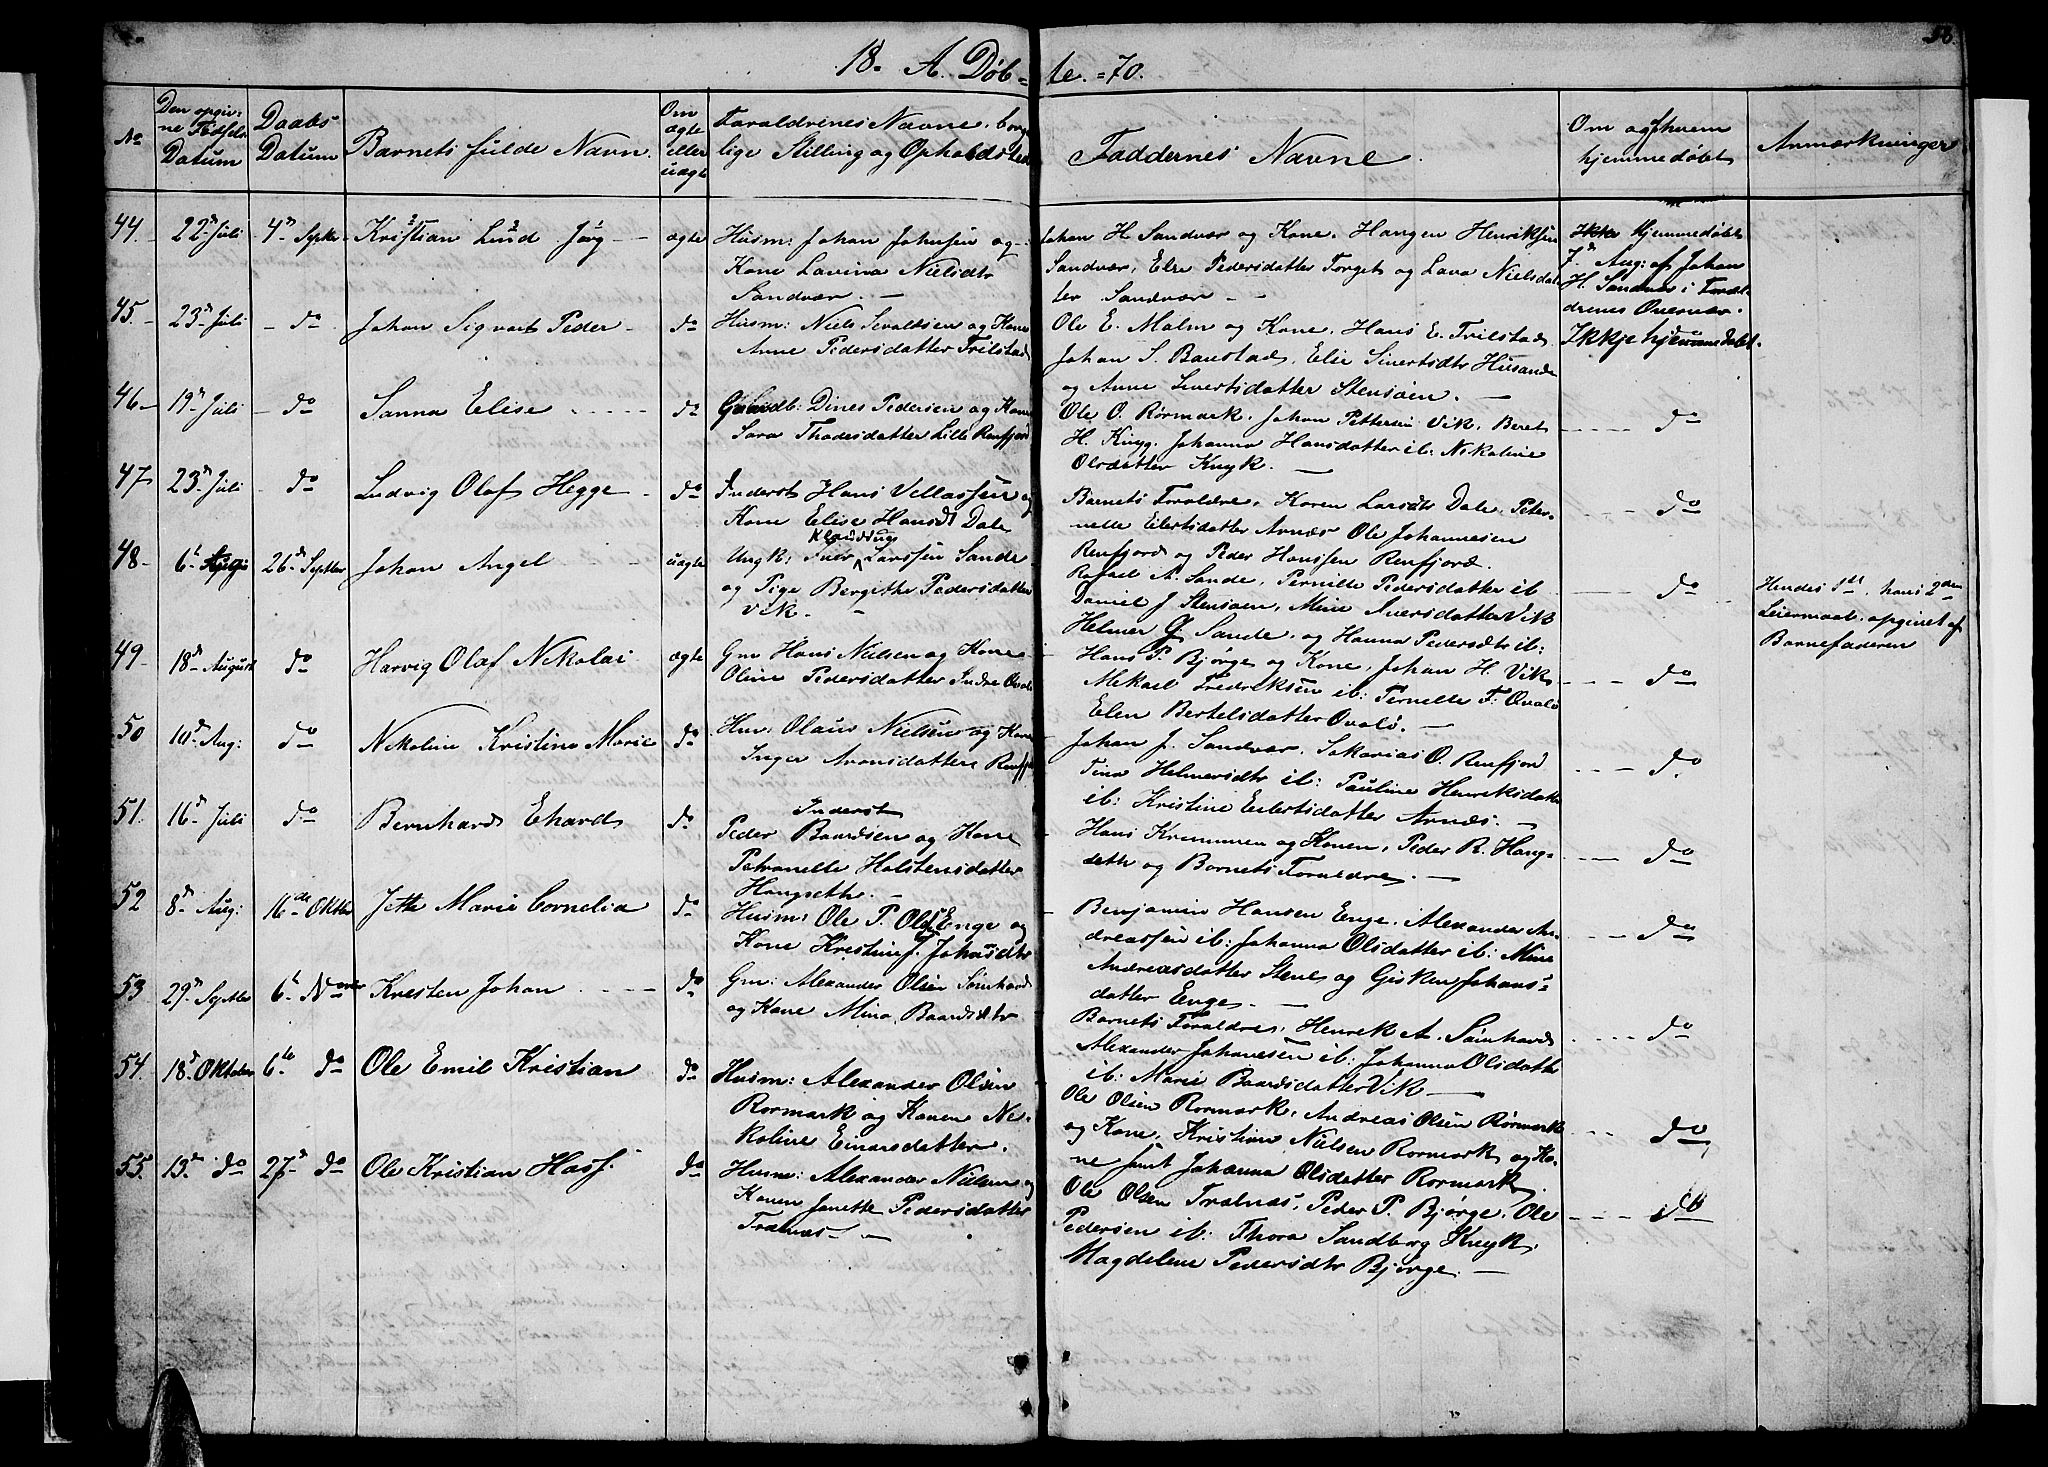 58.
18- A. Døb= te. =70.
No
Den opgiv-
ne Fødsels
Datum
Daabs
Datum
Barnets fulde Navn.
Om
ægte
eller
uægte
Forældrenes Navne, borger-
lige Stilling og Opholdsted
Faddernes Navne.
Om og af hvem
hjemmedøbt
Anmærkninger
44. 22 Juli 4 Septbr Kristian Lund Jörg ægte Husm: Johan Johnsen og
Kone Lavina Nielsdtr
Sandvær.
Johan H. Sandvær og Kone, Hangen Henriksen
Sandvær, Else Pedersdatter Torget og Lava Nielsdat-
ter Sandvær
Ikke Hjemmedøbt
7 Aug: af Johan
H. Sandvær i Foræl-
drenes Overvær.
45. 23 Juli do Johan Sigvart Peder do Husm: Niels Sevaldsen og Kone
Anne Pedersdatter Trilstad
Ole E. Malm og Kone, Hans E. Trilstad
Johan S. Baustad, Elie Sivertsdtr Husande
og Anne Sivertsdatter Stensøen.
Ikkje hjemmedøbt.
46 19 Juli do Sanna Elise do Gaardb: Dines Pedersen og Kone
Sara Thodesdatter Lille Renfjord
Ole O. Rørmark, Johan Pettersen Vik, Beret
H. Knyg, Johanna Hansdatter ib: Nikoline
Olsdatter Knyk.
do
47 23 Juli do Ludvig Olaf Hegge do Inderst Hans Vellassen og
Kone Elise Hansdt Dale
Barnets Forældre, Karen Larsdtr Dale, Peter-
nelle Eilertsdatter Arnæs Ole Johannesen
Renfjord og Peder Hanssen Renfjord.
do
48 6 26 Septbr Johan Angel uægte Ungk: Iver Klauddug Larssen Sande
og Pige Bergithe Pedersdatter
Vik.
Rafael A. Sande, Pernille Pedersdatter ib
Daniel J. Stensøen, Mine Iversdatter Vik
Helmer G. Sande, og Hanna Pedersdtr ib:
do
Hendes 1ste, hans 2den
Leiermaal, opgivet af
Barnefaderen
49 18 August do Harvig Olaf Nikolai ægte Gm Hans Nielsen og Kone
Oline Pedersdatter Indre Qvalø
Hans P. Bjørge og Kone, Johan H. Vik,
Mekael Fredriksen ib: Pernelle F: Qvalø
Elen Bertelsdatter Qvalø.
do
50 10 Aug: do Nekoline Kristine Marie do Hm: Olaus Nielsen og Kone
Inger Aronsdatter Renfjord
Johan J. Sandvær, Sakarias O. Renfjord
Tina Helmersdtr ib: Pauline Henriksdatter
ib: Kristine Eilertsdatter Arnæs.
do.
51. 16 Juli do Bernhard Ehard do Inderst
Peder Baardsen og Kone
Petronelle Holstensdatter
Hongseth.
Hans Kremmen og Konen, Peder R. Hong-
seth og Barnets Forældre.
do
52 8 Aug: 16de Oktbr Jette Marie Cornelia do Husm: Ole P. Olsen Enge og
Kone Kristine J. Johnsdtr
Benjamin Hansen Enge, Alexander An-
dreassen ib: Johanna Olsdatter ib: Mine
Andreasdatter Stene og Gisken Johans-
datter Enge.
do
53 29 Septbr 6 Novbr Kresten Johan do Gm: Alexander Olsen Sømhard
og Kone Mina Baardsdtr
Barnets Forældre, Henrek A. Sømhard
Alexander Johanesen ib: Johanna Olsdatter
ib: Marie Baardsdatter Vik
do
54. 18 Oktober 6te do Ole Emil Kristian do Husm: Alexander Olsen
Rormark og Konen Ne-
koline Einarsdatter.
Ole Olsen Rormark, Andreas Olsen Rørmark
og Kone, Kristian Nielsen Rormark og Ko-
ne samt Johanna Olsdatter Rormark
do
55. 13 do 27 do Ole Kristian Hass. do Husm: Alexander Nielsen og
Konen Janette Pedersdatter
Trælnæs
Ole Olsen Trælnæs, Peder P. Bjørge, Ole
Pedersen ib: Thora Sandberg Knyk,
Magdelene Pedersdtr Bjørge.
do